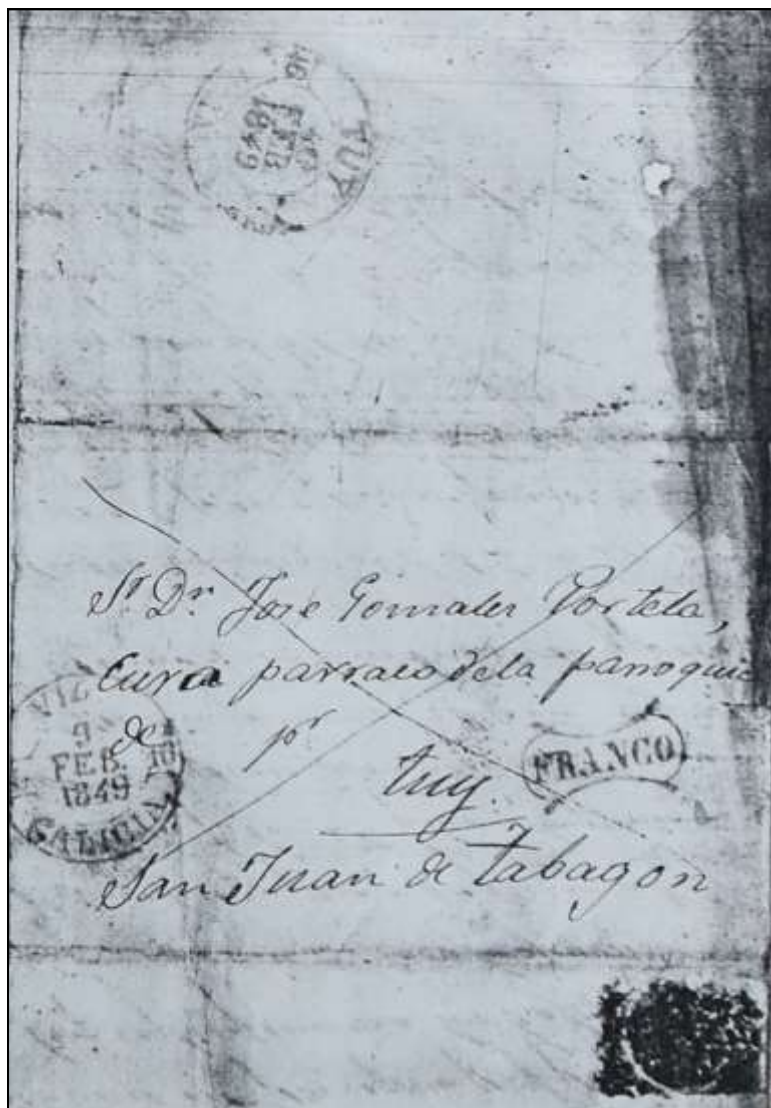 TUY
10
FEB
1849
Sr. Dn. Jose Gonzalez Portela,
Cura parraco de la parroquia
de pr
Tuy.
San Juan de Tabagon
9
FEB.
1849
GALICIA
10
FRANCO